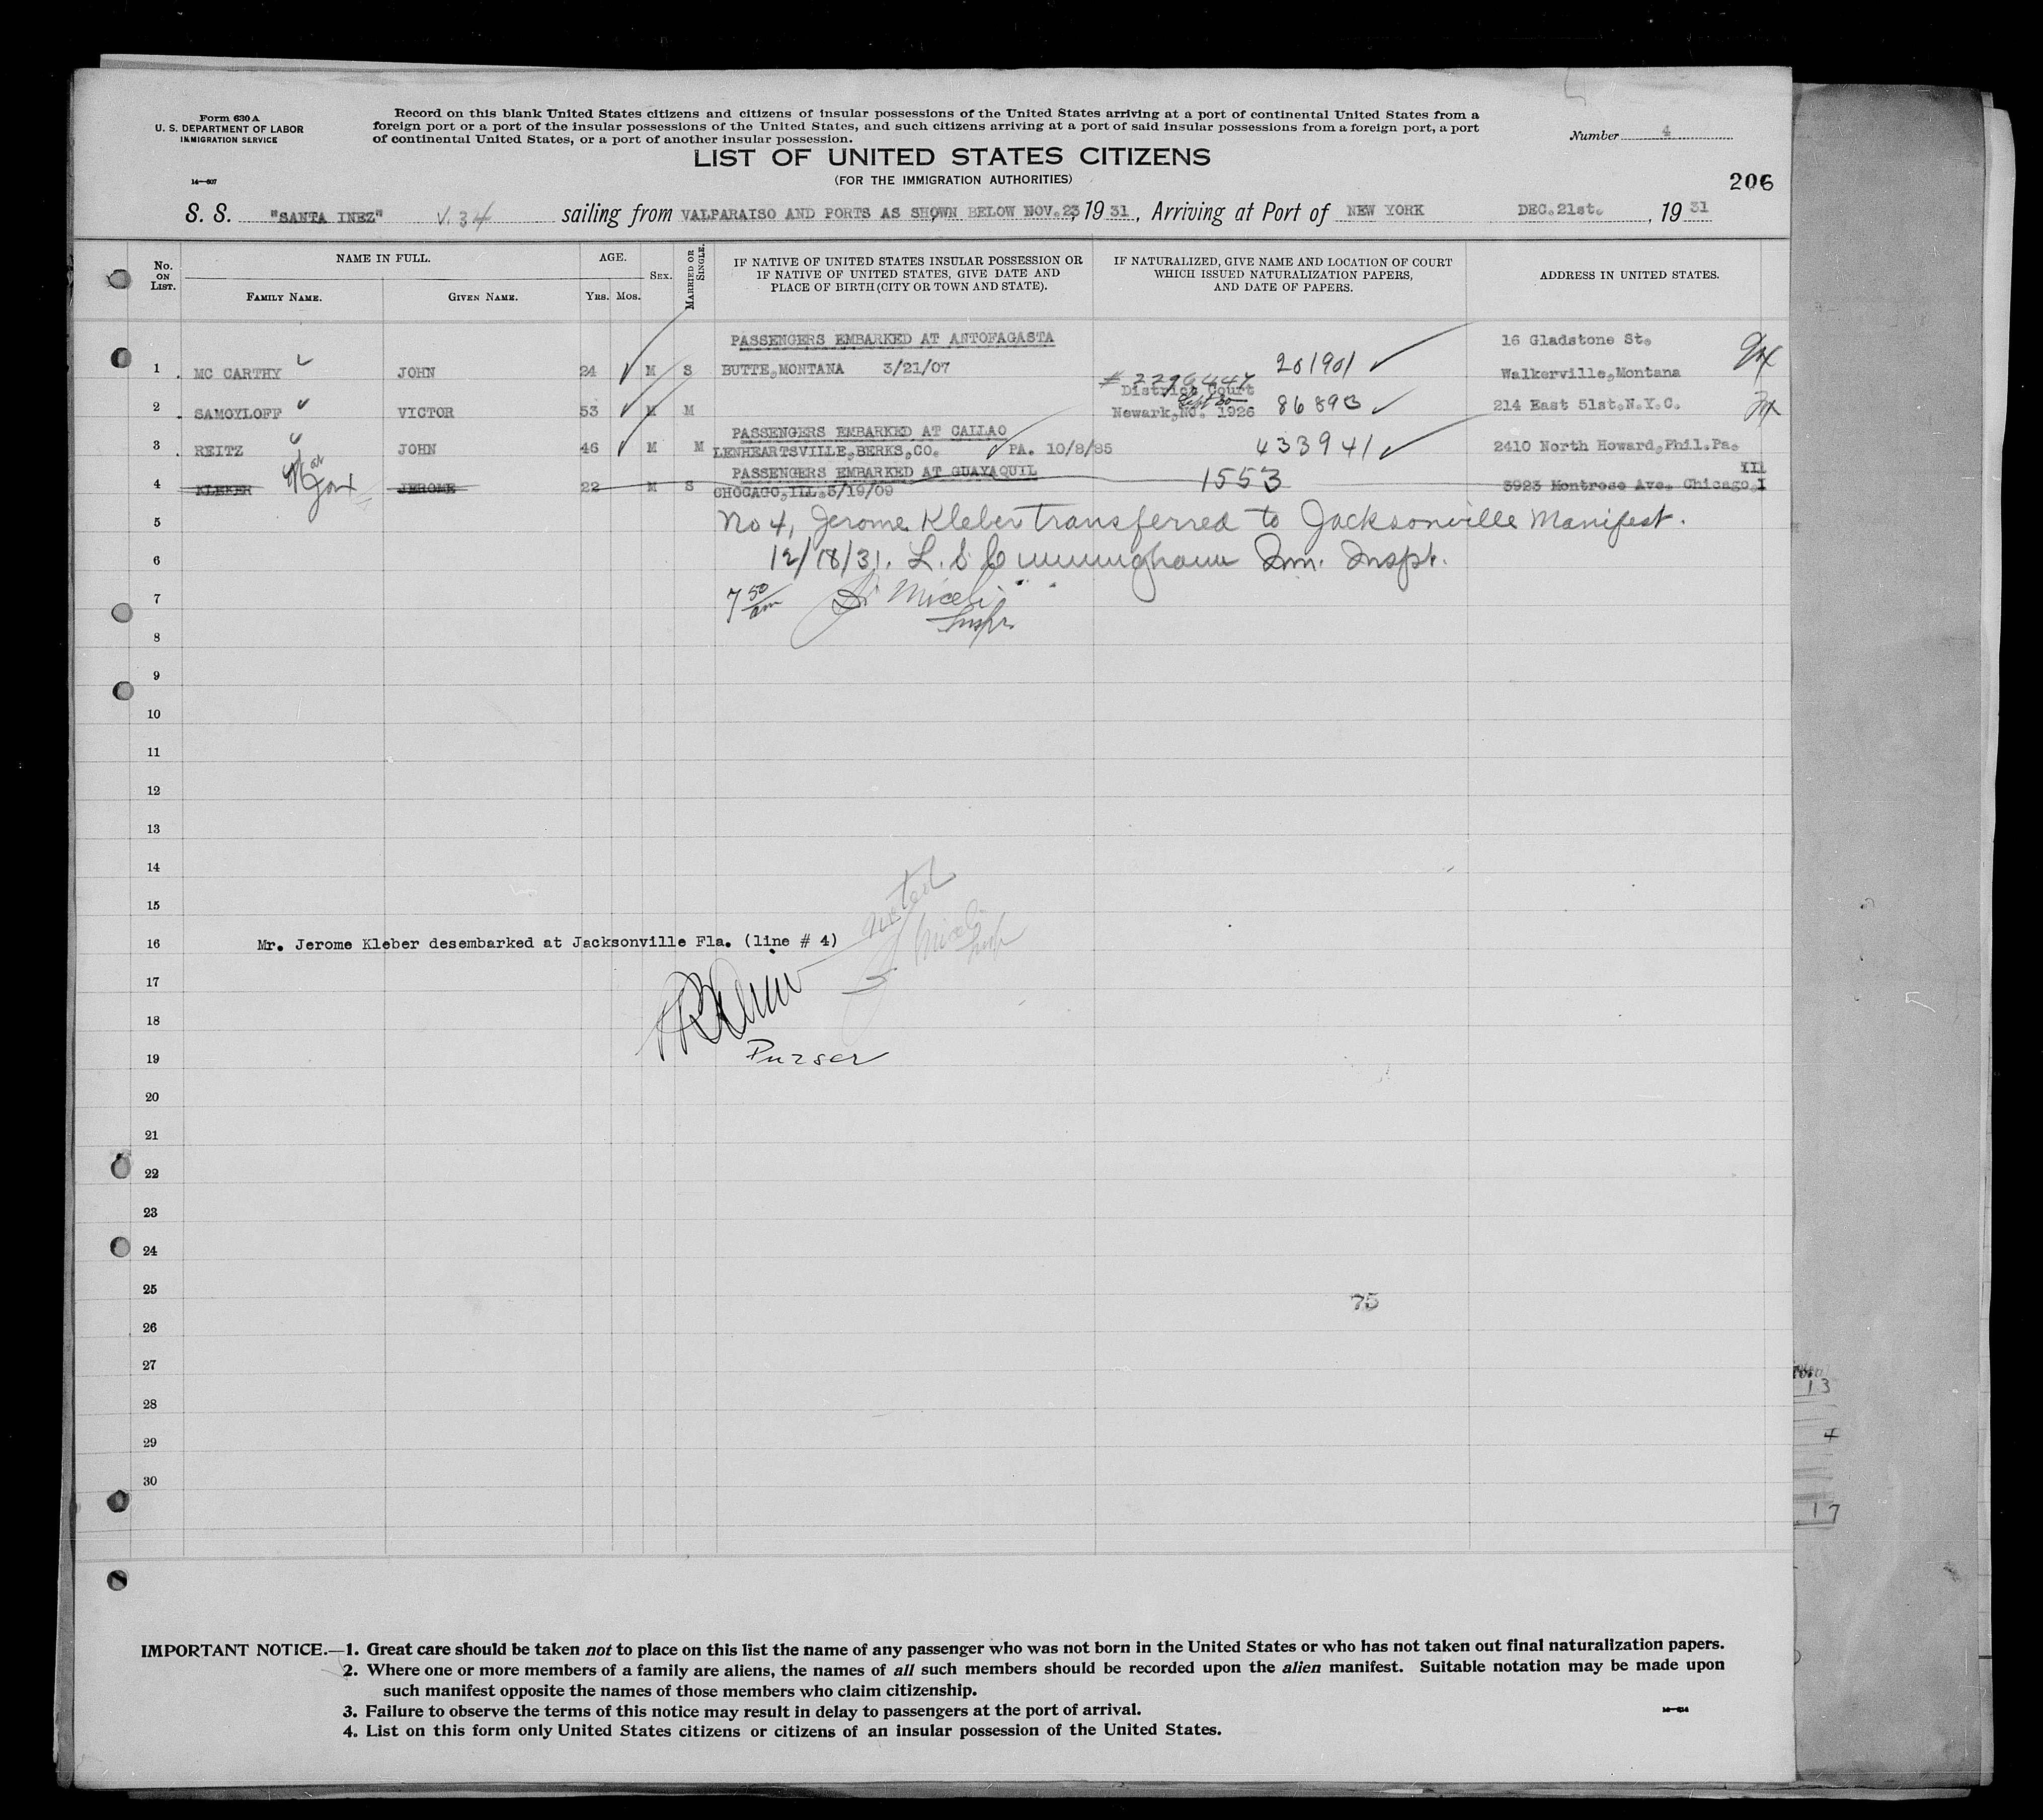 Form 630 A
U. S. DEPARTMENT OF LABOR
IMMIGRATION SERVICE
14—607
Record on this blank United States citizens and citizens of insular possessions of the United States arriving at a port of continental United States from a
foreign port or a port of the insular possessions of the United States, and such citizens arriving at a port of said insular possessions from a foreign port, a port
of continental United States, or a port of another insular possession.
Number 4
LIST OF UNITED STATES CITIZENS
(FOR THE IMMIGRATION AUTHORITIES)
206
S. S. "SANTA INEZ" V.34 sailing from VALPARAISO AND PORTS AS SHOWN BELOW NOV.23, 19 31, Arriving at Port of NEW YORK DEC.21st., 19 31
No. ON LIST.
NAME IN FULL.
FAMILY NAME.
GIVEN NAME.
AGE.
YRS. MOS.
SEX.
MARRIED OR SINGLE.
IF NATIVE OF UNITED STATES INSULAR POSSESSION OR
IF NATIVE OF UNITED STATES, GIVE DATE AND
PLACE OF BIRTH (CITY OR TOWN AND STATE).
IF NATURALIZED, GIVE NAME AND LOCATION OF COURT
WHICH ISSUED NATURALIZATION PAPERS,
AND DATE OF PAPERS.
ADDRESS IN UNITED STATES.
PASSENGERS EMBARKED AT ANTOFAGASTA
16 Gladstone St.
1 MC CARTHY JOHN 24 M S BUTTE,MONTANA 3/21/07 201901 Walkerville,Montana
# 2296447
District Court
Sept 20
2 SAMOYLOFF VICTOR 53 M M Newark,NJ. 1926 86893 214 East 51st.N.Y.C.
PASSENGERS EMBARKED AT CALLAO
3 REITZ JOHN 46 M M LENHEARTSVILLE,BERKS,CO. PA. 10/8/85 433941 2410 North Howard,Phil.Pa.
PASSENGERS EMBARKED AT GUAYAQUIL
Ill
4 KLEKER JEROME 22 M S CHOCAGO,ILL.5/19/09 1553 3923 Montrose Ave. Chicago,I
5 No 4, Jerome Kleber transferred to Jacksonville Manifest.
6 12/18/31. L. S Cunningham Im. Inspt.
7 7 50 am Miceli
Inspr
8
9
10
11
12
13
14
15 noted
Miceli
Inspr
16 Mr. Jerome Kleber desembarked at Jacksonville Fla. (line # 4)
17
18
19 Purser
20
21
22
23
24
25
75
26
27
28
29
30
13
4
17
IMPORTANT NOTICE.—1. Great care should be taken not to place on this list the name of any passenger who was not born in the United States or who has not taken out final naturalization papers.
2. Where one or more members of a family are aliens, the names of all such members should be recorded upon the alien manifest. Suitable notation may be made upon
such manifest opposite the names of those members who claim citizenship.
3. Failure to observe the terms of this notice may result in delay to passengers at the port of arrival.
4. List on this form only United States citizens or citizens of an insular possession of the United States.